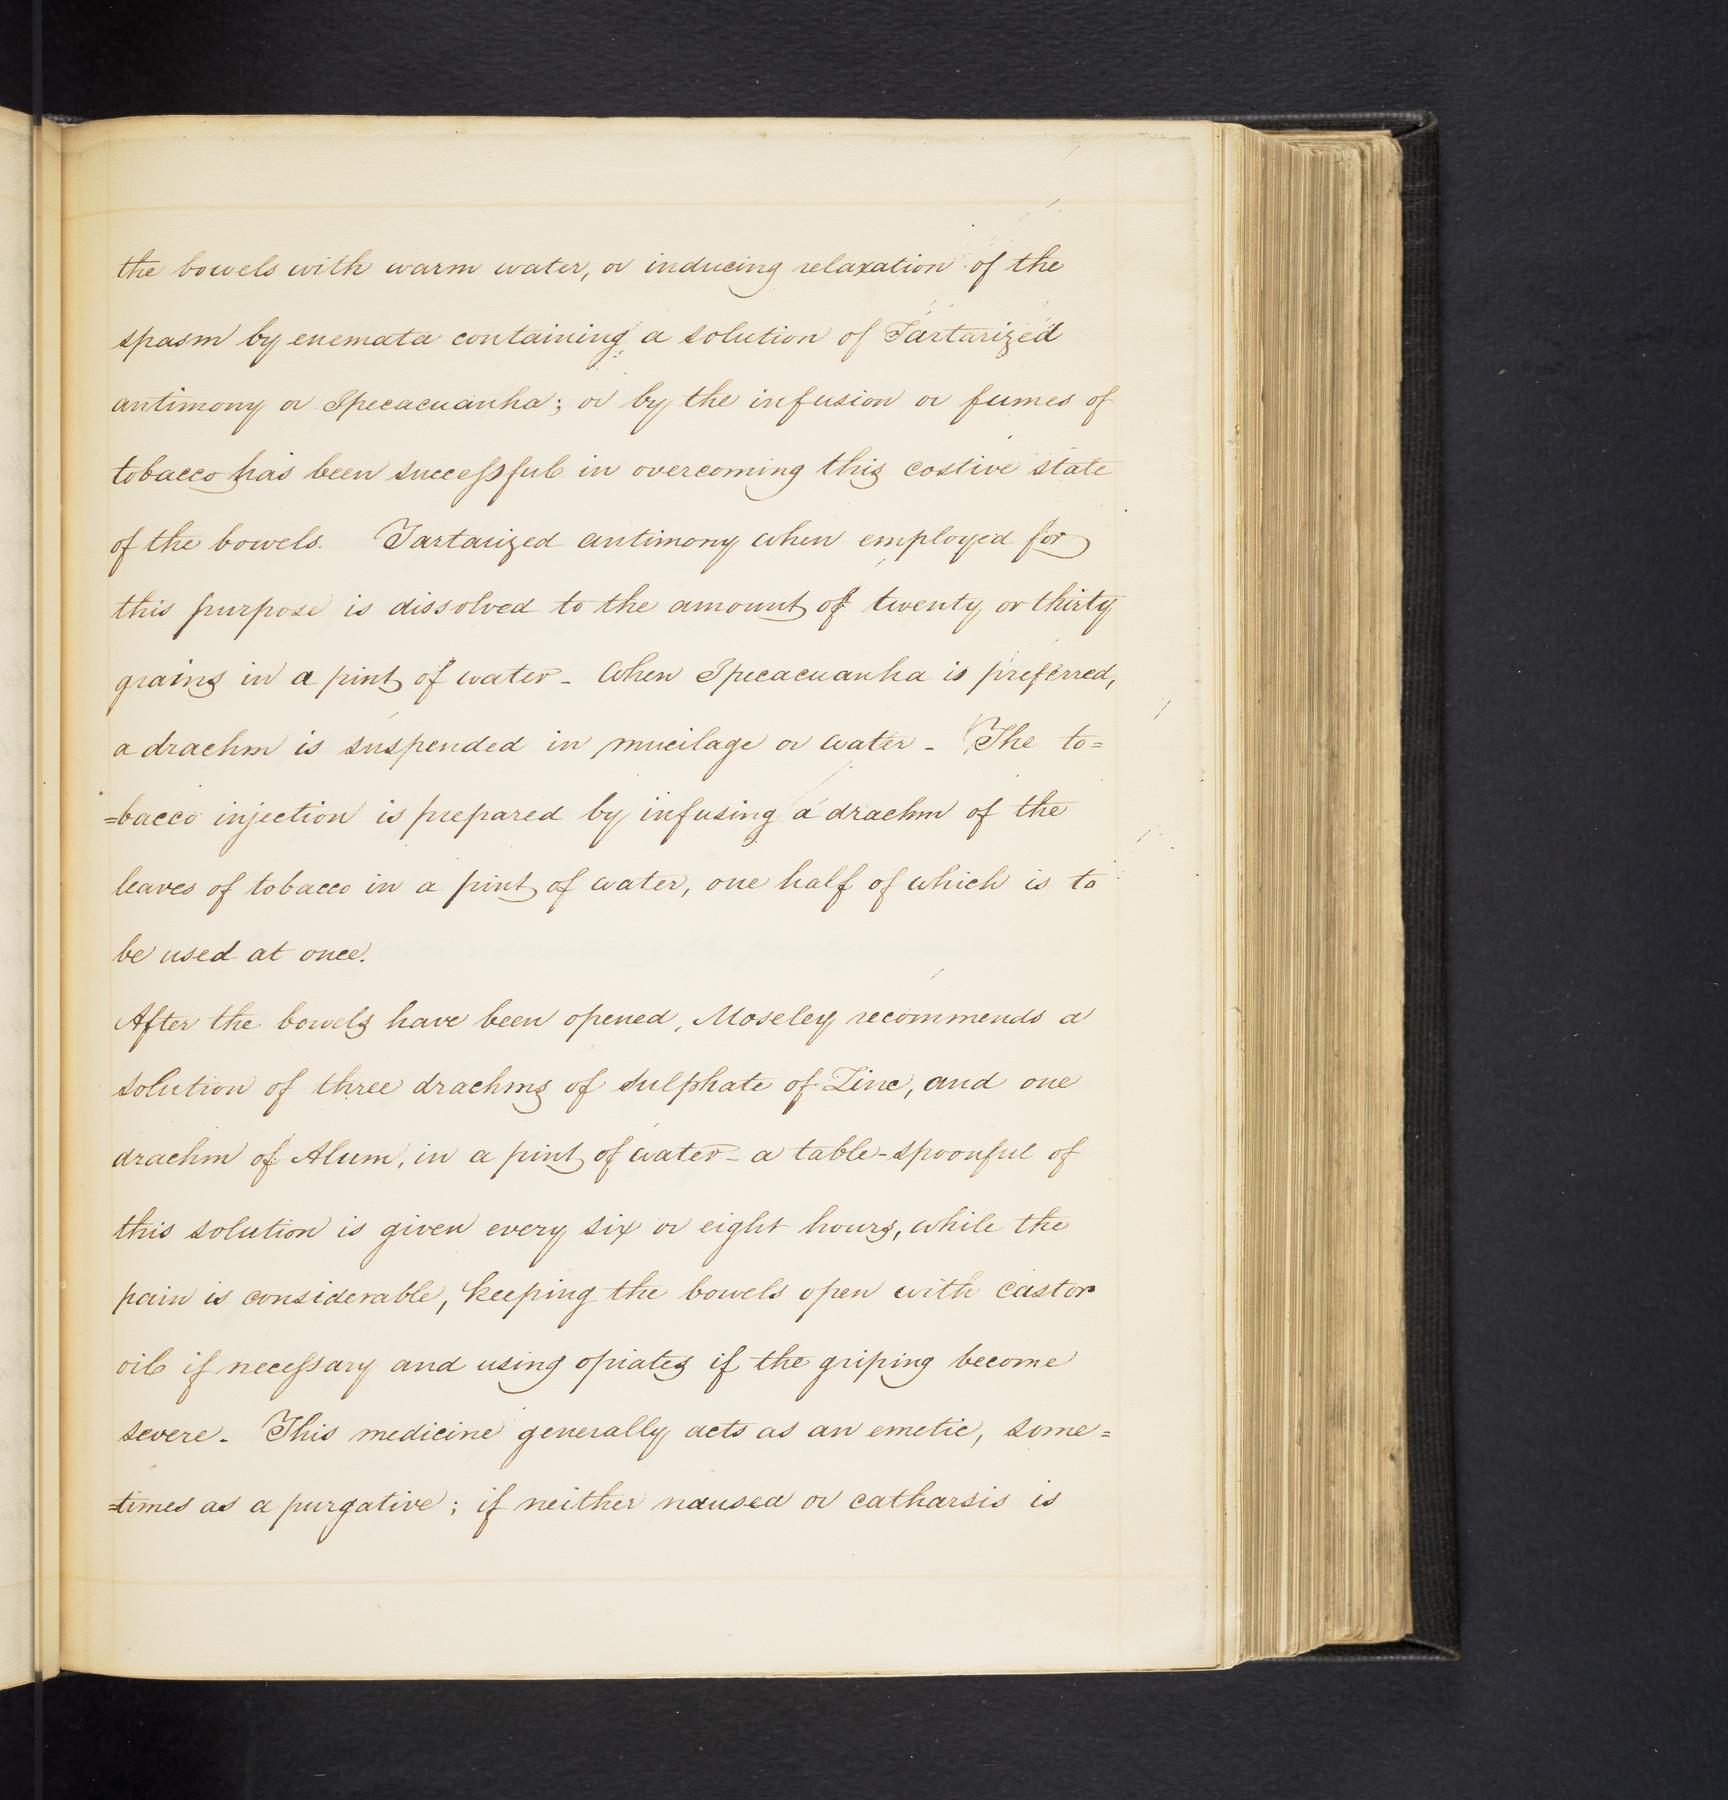 the bowels with warm water, or inducing relaxation of the
spasm by enemata containing a solution of Tartarized
antimony or Ipecacuanha; or by the infusion or fumes of
tobacco has been successful in overcoming this costive state
of the bowels. Tartarized antimony when employed for
this purpose is dissolved to the amount of twenty or thirty
grains in a pint of water - When Ipecacuanha is preferred,
a drachm is suspended in mucilage or water - The to=
=bacco injection is prepared by infusing a drachm of the
leaves of tobacco in a pint of water, one half of which is to
be used at once.
After the bowels have been opened, Moseley recommends a
solution of three drachms of sulphate of Zinc, and one
drachm of Alum, in a pint of water - a table-spoonful of
this solution is given every six or eight hours, while the
pain is considerable, keeping the bowels open with castor
oil if necessary and using opiates if the griping become
severe. This medicine generally acts as an emetic, some=
=times as a purgative; if neither nausea or catharsis is